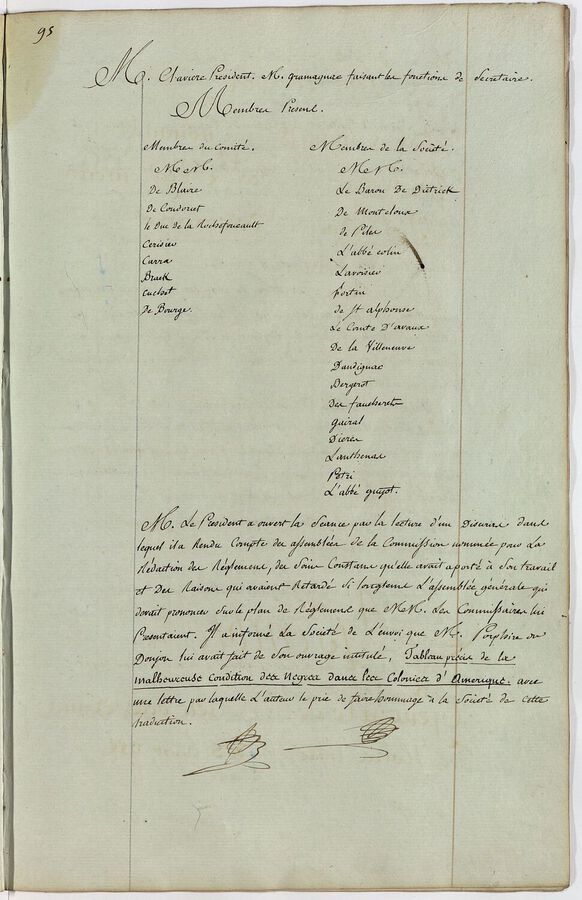 95
M. Claviere President. M. gramagnac faisant les fonctions de Secretaire.
Membres Present.
Membres du comité.
MM.
De Blaire
De Condorcet
le Duc de la Rochefoucault
Cerisier
Carra
Brack
Cuchet
De Bourge.
Membres de la Société.
MM.
Le Baron De Dietrick
De Montcloux
de Piles
L'abbé colin
Lavoisier
Fortin
de St alphonse
Le Comte D'avaux
De la Villeneuve
Dandignac
Bergerot
Des faucherets
Guiral
Dieres
Lanthenas
Petri
L'abbé guyot.
M. Le President a ouvert la Seance par la lecture d'un Discours dans
lequel il a Rendu Compte des assemblées de la Commission nommée pour La
Rédaction des Réglemens, des Soins Constans qu'elle avait aporté à Son travail
et Des Raisons qui avaient Retardé Si longtems L'assemblée générale qui
devait prononcer Sur le plan de Réglemens que MM. Les Commissaires lui
Presentaient. Il a informé La Société de L'envoi que M. Porphire ou
Donjon lui avait fait de Son ouvrage intitulé, Tableau précis de la
malheureuse condition des Negres dans les Colonies d'Amerique. avec
une lettre par laquelle L'auteur le prie de faire hommage à la Société de cette
traduction.